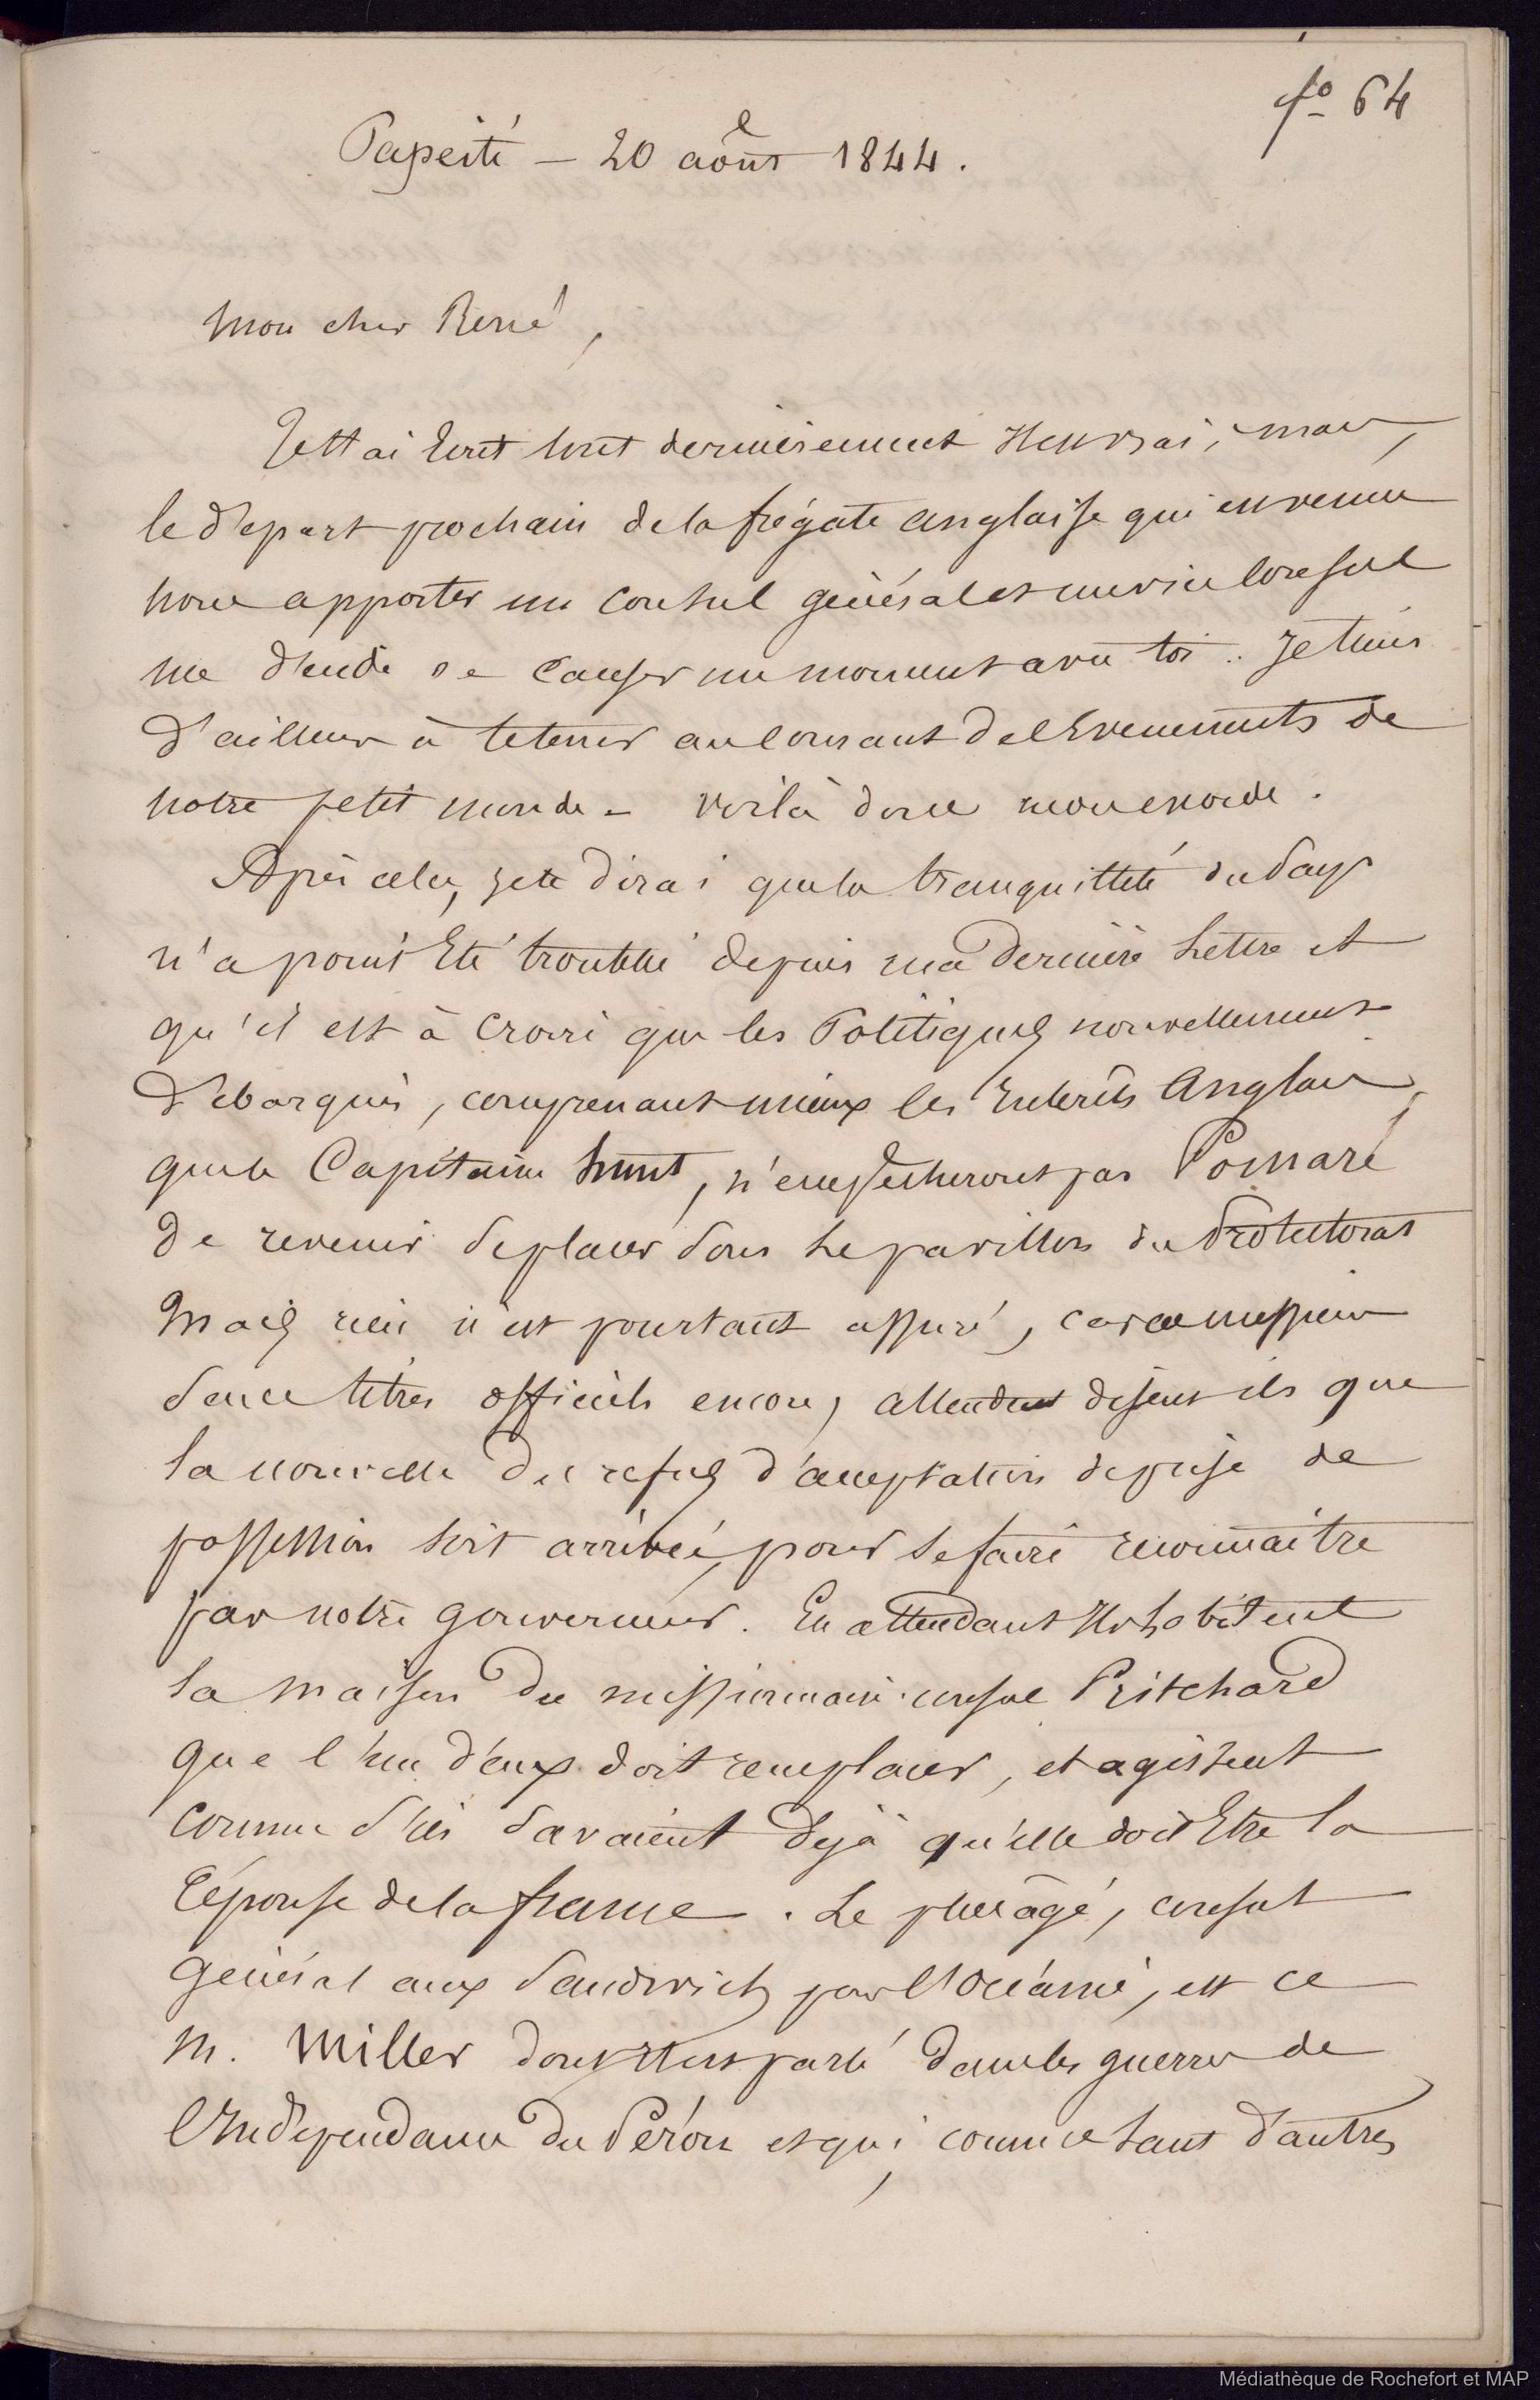 fo 64
Papeïté — 20 août 1844.
Mon cher René,
Je t'ai écrit tout dernièrement il est vrai, mais,
le départ prochain de la frégate anglaise qui est venue
nous apporter un consul général et un vice consul
me décide de causer un moment avec toi. Je tiens
d'ailleurs à te tenir au courant des Evenements de
notre petit monde – voilà donc mon exorde.
Après cela, je te dirai que la tranquillité du Pays
n'a point Eté troublée depuis ma dernière Lettre et
qu'il est à croire que les Politiques nouvellement
débarqués, comprenant mieux les Intérêts Anglais,
que le Capitaine hunt, n'empêcheront pas Pomaré
de revenir se placer sous le pavillon du Protectorat
Mais rien n'est pourtant assuré, car ces messieurs
sans titres officiels encore, attendent disent ils que
la nouvelle du refus d'acceptation de prise de
possession soit arrivée, pour se faire reconnaître
par notre gouverneur. En attendant Ils habitent
la maison du missionnaire-consul Pritchard
que l'un d'eux doit remplacer, et agissent
comme s'ils savaient déjà qu'elle doit Etre la
Réponse de la france. Le plus âgé, consul
général aux Sandwich pour l'Océanie, est ce
M. Miller dont Il est parlé dans les guerres de
l'Independance du Pérou et qui, comme tant d'autres
Médiathèque de Rochefort et MAP